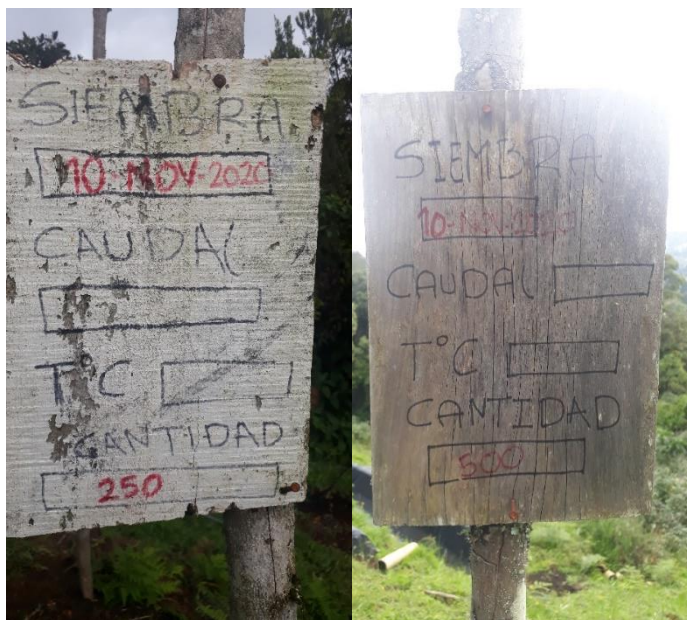 SIEMBRA
10-NOV-2020
CAUDAL
T°C
CANTIDAD
250
SIEMBRA
10-NOV-2020
CAUDAL
T°C
CANTIDAD
500